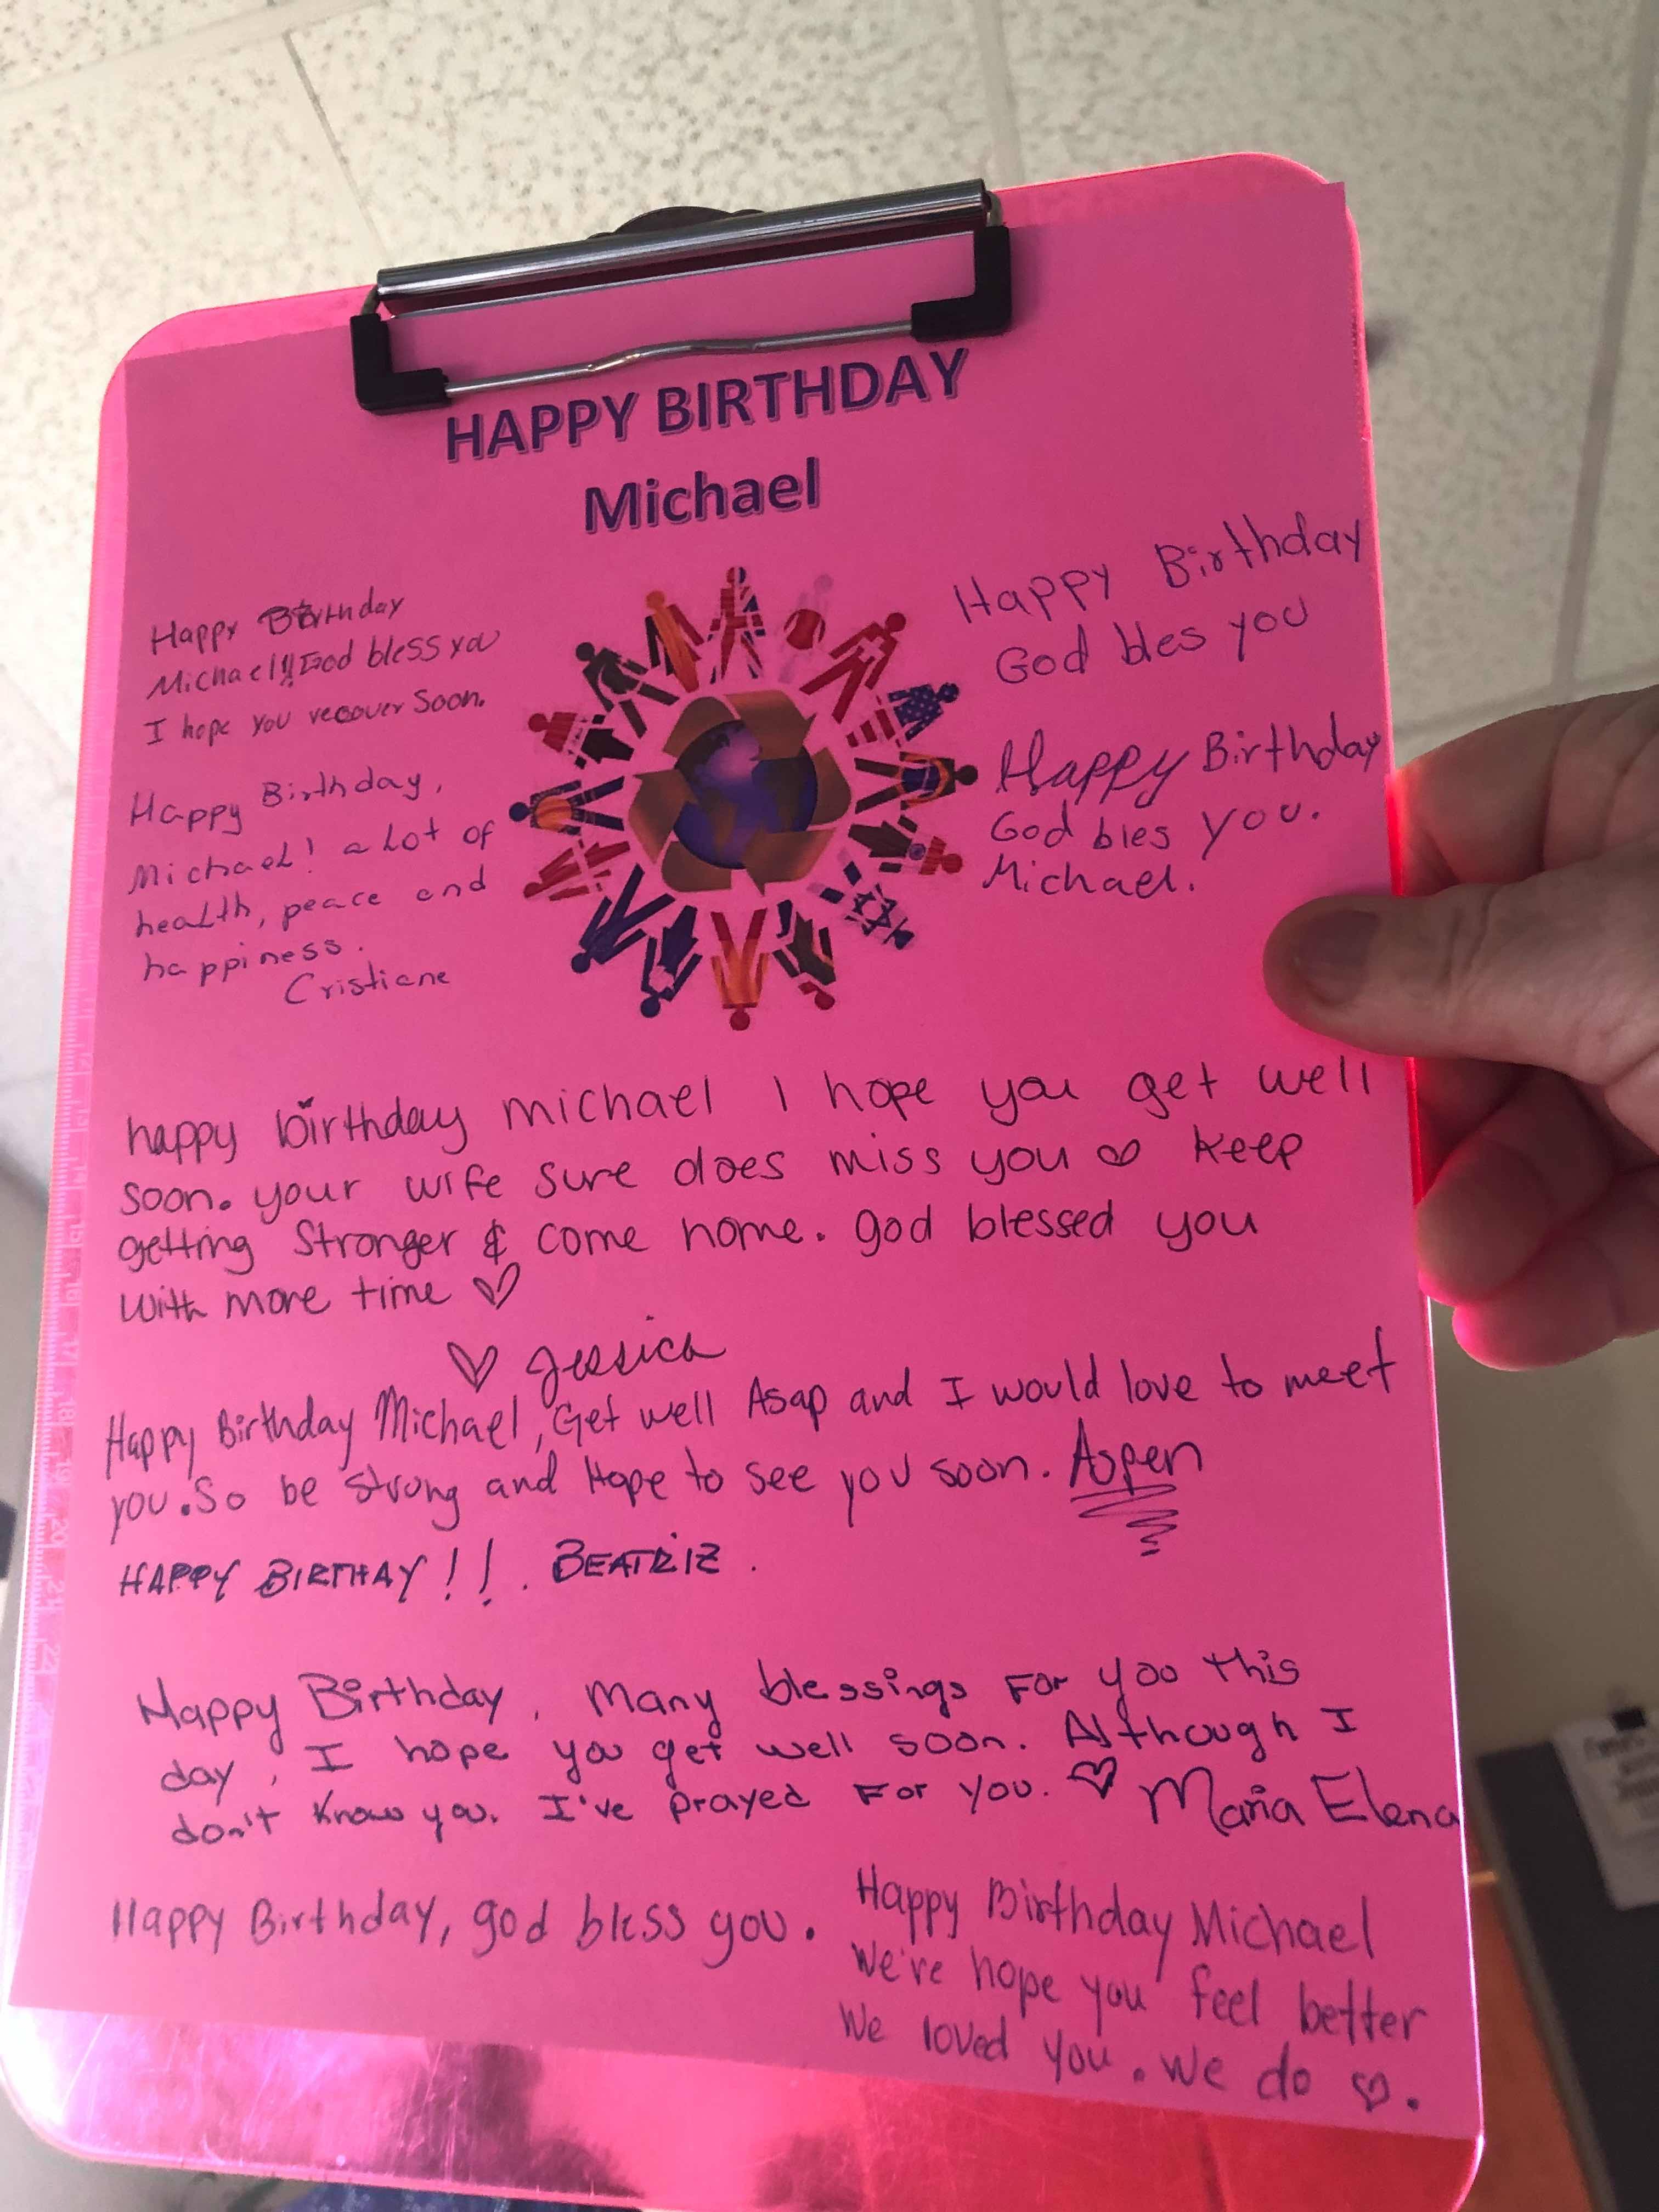 HAPPY BIRTHDAY
Michael
Happy Birthday
Michael!! God bless you
I hope you recover Soon.
Happy Birthday,
Michael! a Lot of
health, peace and
happiness.
Cristiane
Happy Birthday
God bles you
Happy Birthday
God bles you.
Michael.
happy birthday michael I hope you get well
soon. your wife sure does miss you ♡ keep
getting Stronger & come home. god blessed you
with more time ♡
♡ Jessica
Happy Birthday Michael, Get well Asap and I would love to meet
you. So be strong and Hope to see you soon. Aspen
HAPPY BIRTHAY!!. BEATRIZ.
Happy Birthday, Many blessings For you this
day, I hope you get well soon. Although I
don't know you. I've prayed For you. ♡ Maria Elena
Happy Birthday, god bless you.
Happy Birthday Michael
We're hope you feel better
We loved you. We do ♡.